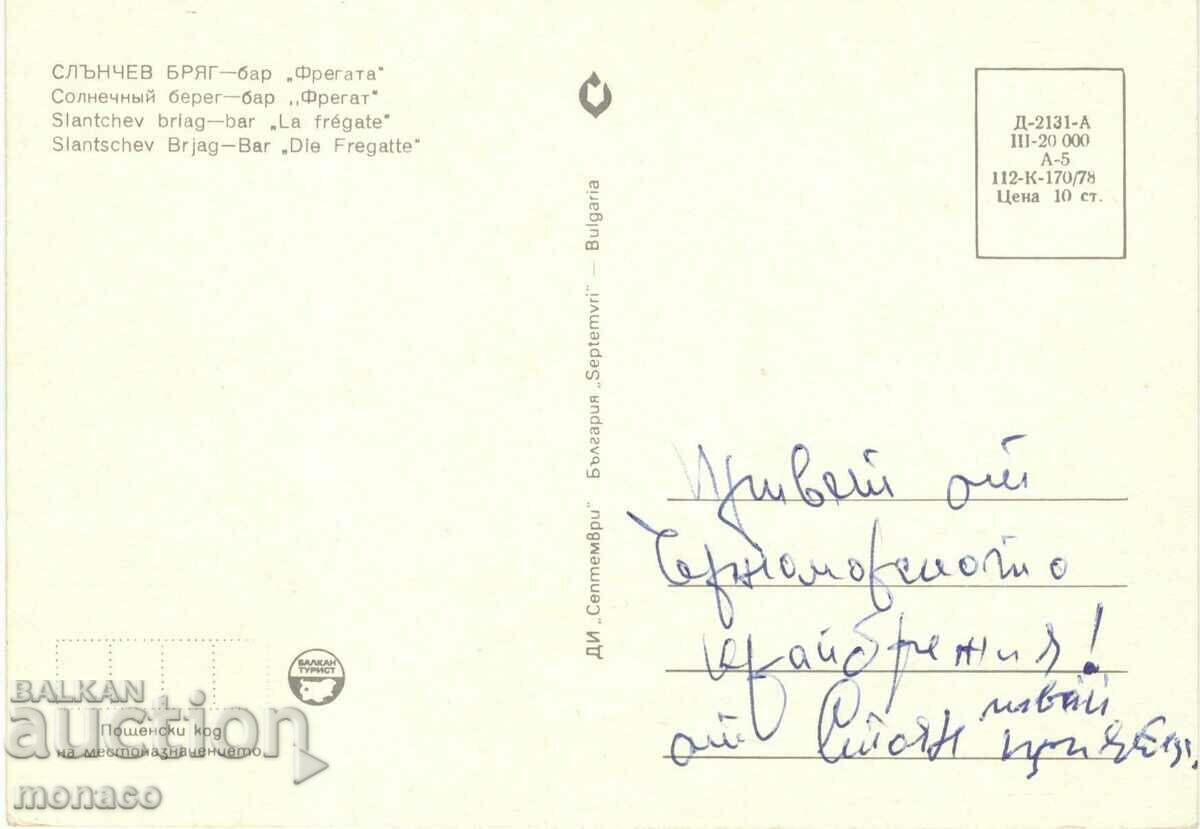 СЛЪНЧЕВ БРЯГ—бар „Фрегата"
Солнечный берег—бар ,,Фрегат"
Slantchev briag—bar „La frégate"
Slantschev Brjag—Bar „Die Fregatte"
ДИ „Септември" България „Septemvri" — Bulgaria
Д-2131-А
III-20 000
А-5
112-К-170/78
Цена 10 ст.
Привет от
Черноморското
крайбрежия!
от Стоян
БАЛКАН
ТУРИСТ
Пощенски код
на местоназначението
BALKAN
auction
monaco